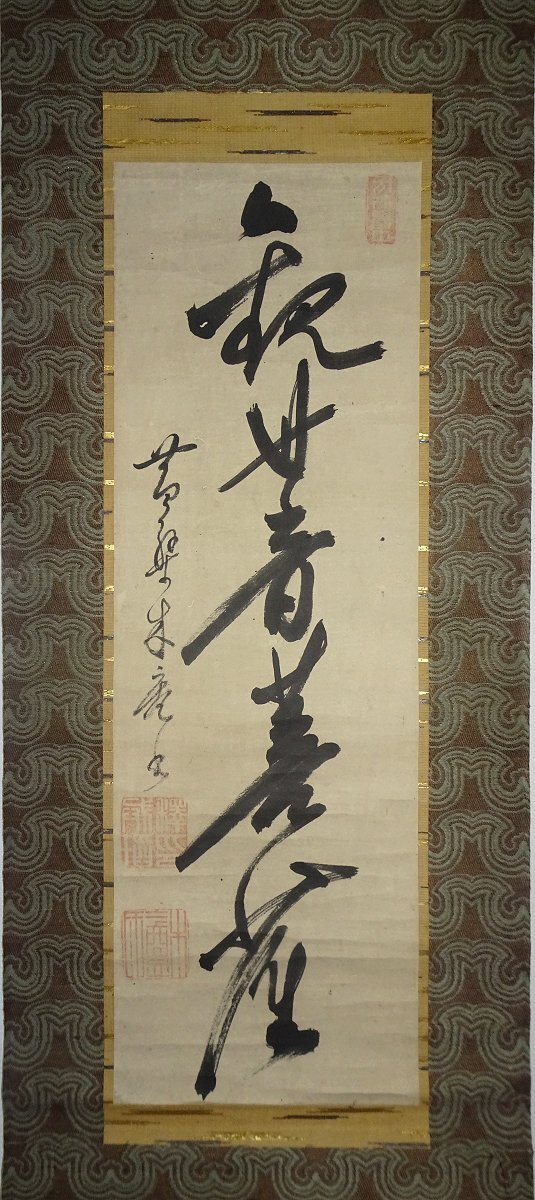 観世音菩薩
黄檗木庵書